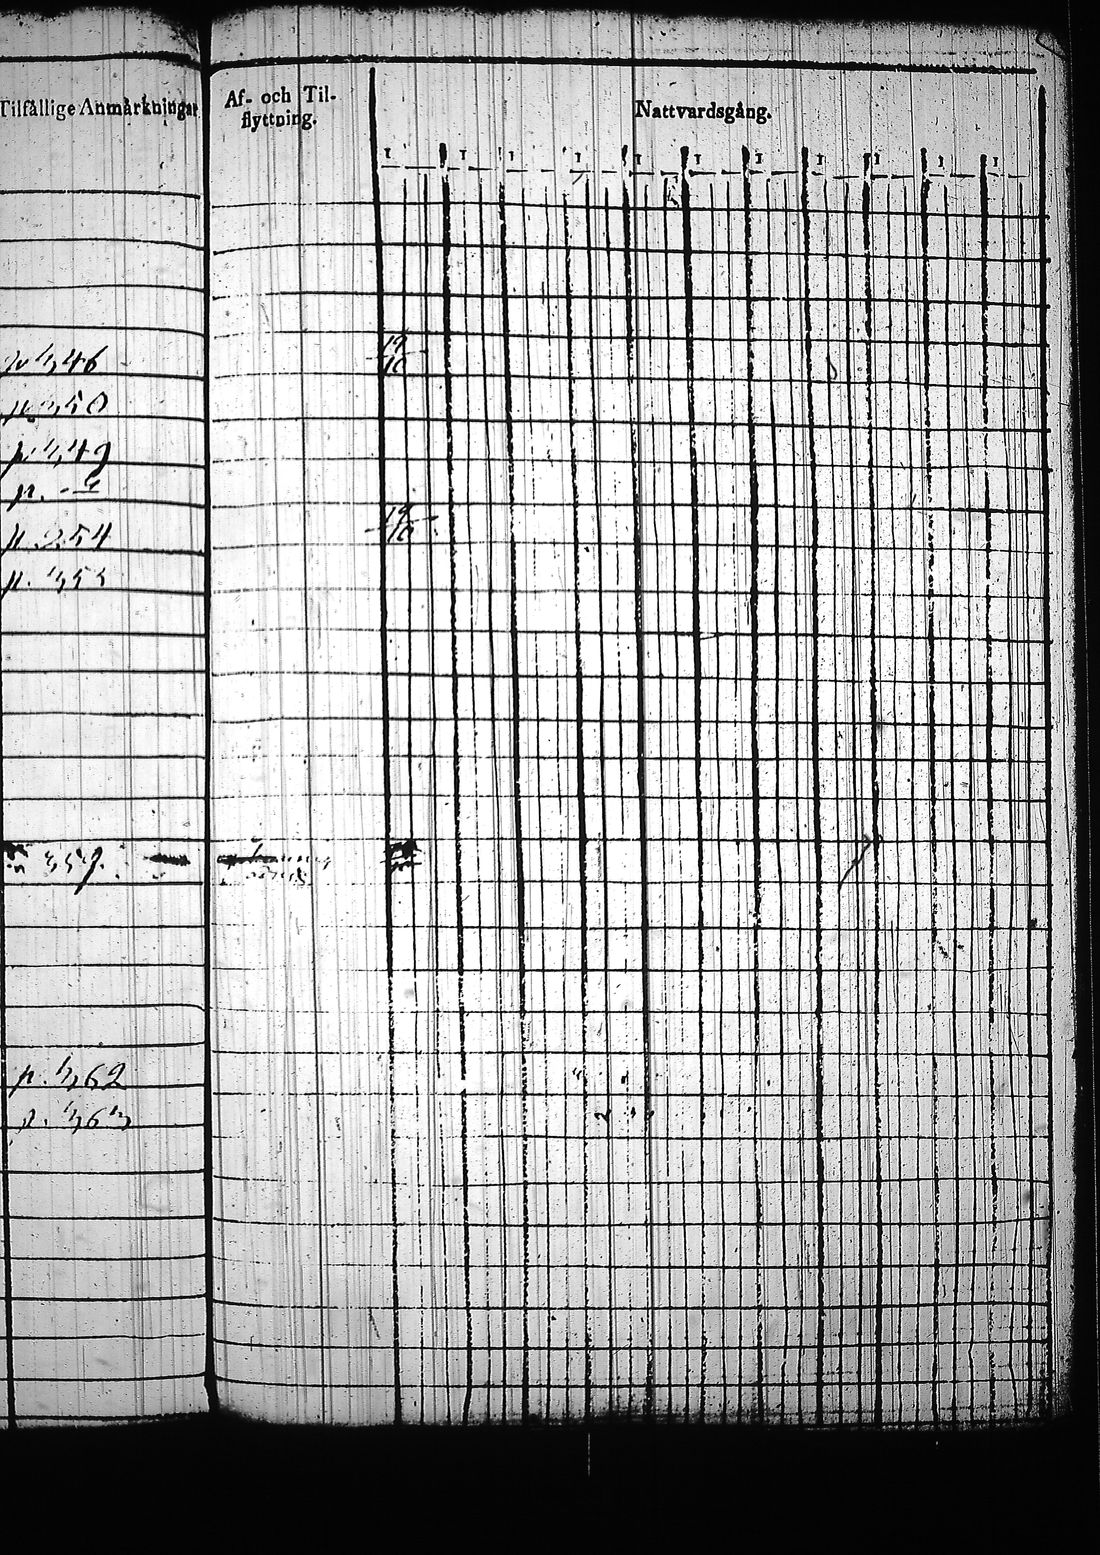 Tilfällige Anmärkningar
Af- och Til-
flyttning.
Nattvardsgång.
1 1 1 1 1 1 1 1 1 1 1
p 346 19/10
p 350
p 349
p.
p. 254 19/10
p. 355
359.
p. 362
p. 363